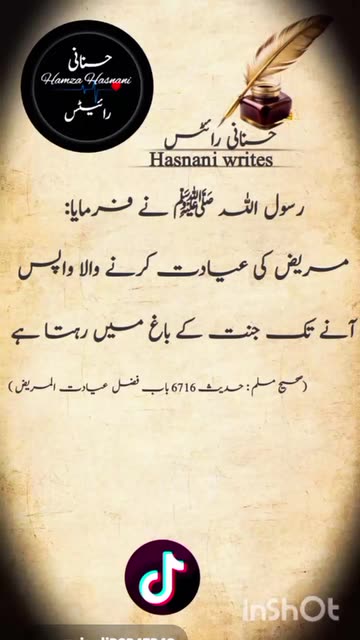 حسنانی
Hamza Hasnani
رائیٹس
حسنانی رائٹس
Hasnani writes
رسول اللہ ﷺ نے فرمایا:
مریض کی عیادت کرنے والا واپس
آنے تک جنت کے باغ میں رہتا ہے
(صحیح مسلم: حدیث 6716 باب فضل عیادت المریض)
InShOt